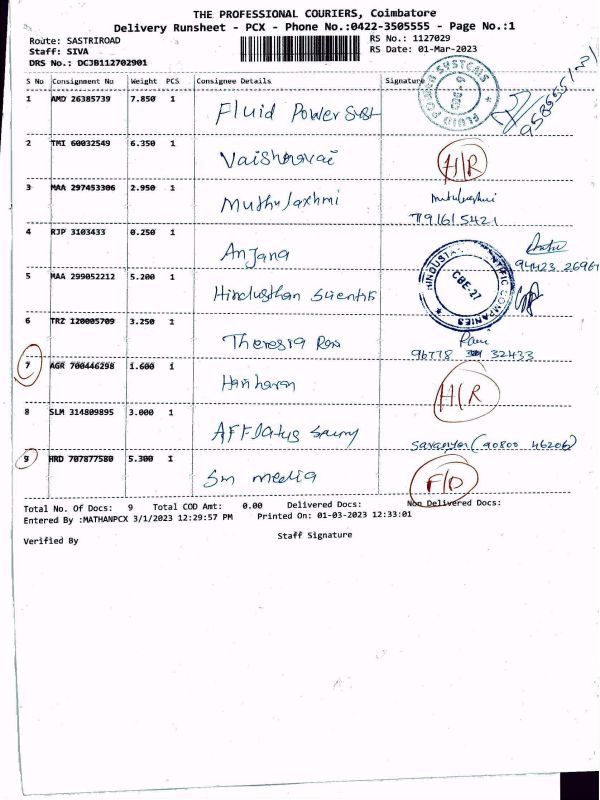 THE PROFESSIONAL COURIERS, Coimbatore
Delivery Runsheet - PCX - Phone No.:0422-3505555 - Page No.:1
Route: SASTRIROAD RS No.: 1127029
Staff: SIVA RS Date: 01-Mar-2023
DRS No.: DCJB112702901
S No Consignment No Weight PCS Consignee Details Signature
1 AMD 26385739 7.850 1 Fluid Power Syst
FLUID POWER SYSTEMS
2 TMI 60032549 6.350 1 Vaishnavai H/R
3 MAA 297453306 2.950 1 Muthulaxhmi
4 RJP 3103433 0.250 1 Anjana
5 MAA 299052212 5.200 1 Hindusthan Scientifi
HINDUSTAN SCIENTIFIC COMPANIES CBE-27
6 TRZ 120005709 3.250 1 Theresia Rose Rani
96778 32433
7 AGR 700446298 1.600 1 Hariharan H/R
8 SLM 314809895 3.000 1 AFFlatus (90800 46206)
9 HRD 707877580 5.300 1 Sm media F/D
Total No. Of Docs: 9 Total COD Amt: 0.00 Delivered Docs: Non Delivered Docs:
Entered By :MATHANPCX 3/1/2023 12:29:57 PM Printed On: 01-03-2023 12:33:01
Verified By Staff Signature